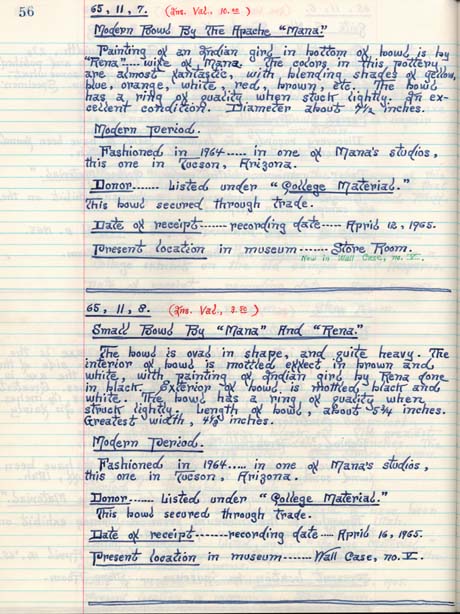 56
65, 11, 7. (Ins. Val., 10.00)
Modern Bowl By The Apache "Mana."
Painting of an Indian girl in bottom of bowl is by
"Rena"..... wife of Mana. The colors in this pottery
are almost fantastic, with blending shades of yellow,
blue, orange, white, red, brown, etc. The bowl
has a ring of quality when stuck lightly. In ex-
cellent condition. Diameter about 7½ inches.
Modern Period.
Fashioned in 1964..... in one of Mana's studios,
this one in Tucson, Arizona.
Donor....... Listed under "College Material."
This bowl secured through trade.
Date of receipt-------recording date----- April 12, 1965.
Present location in museum------- Store Room.
Now in Wall Case, no. V.
65, 11, 8. (Ins. Val., 3.50)
Small Bowl By "Mana" And "Rena."
The bowl is oval in shape, and quite heavy. The
interior of bowl is mottled effect in brown and
white, with painting of Indian girl by Rena done
in black. Exterior of bowl is mottled, black and
white. The bowl has a ring of quality when
struck lightly. Length of bowl, about 5¾ inches.
Greatest width, 4⅛ inches.
Modern Period.
Fashioned in 1964..... in one of Mana's studios,
this one in Tucson, Arizona.
Donor....... Listed under "College Material."
This bowl secured through trade.
Date of receipt-------recording date.... April 16, 1965.
Present location in museum------- Wall Case, no. V.